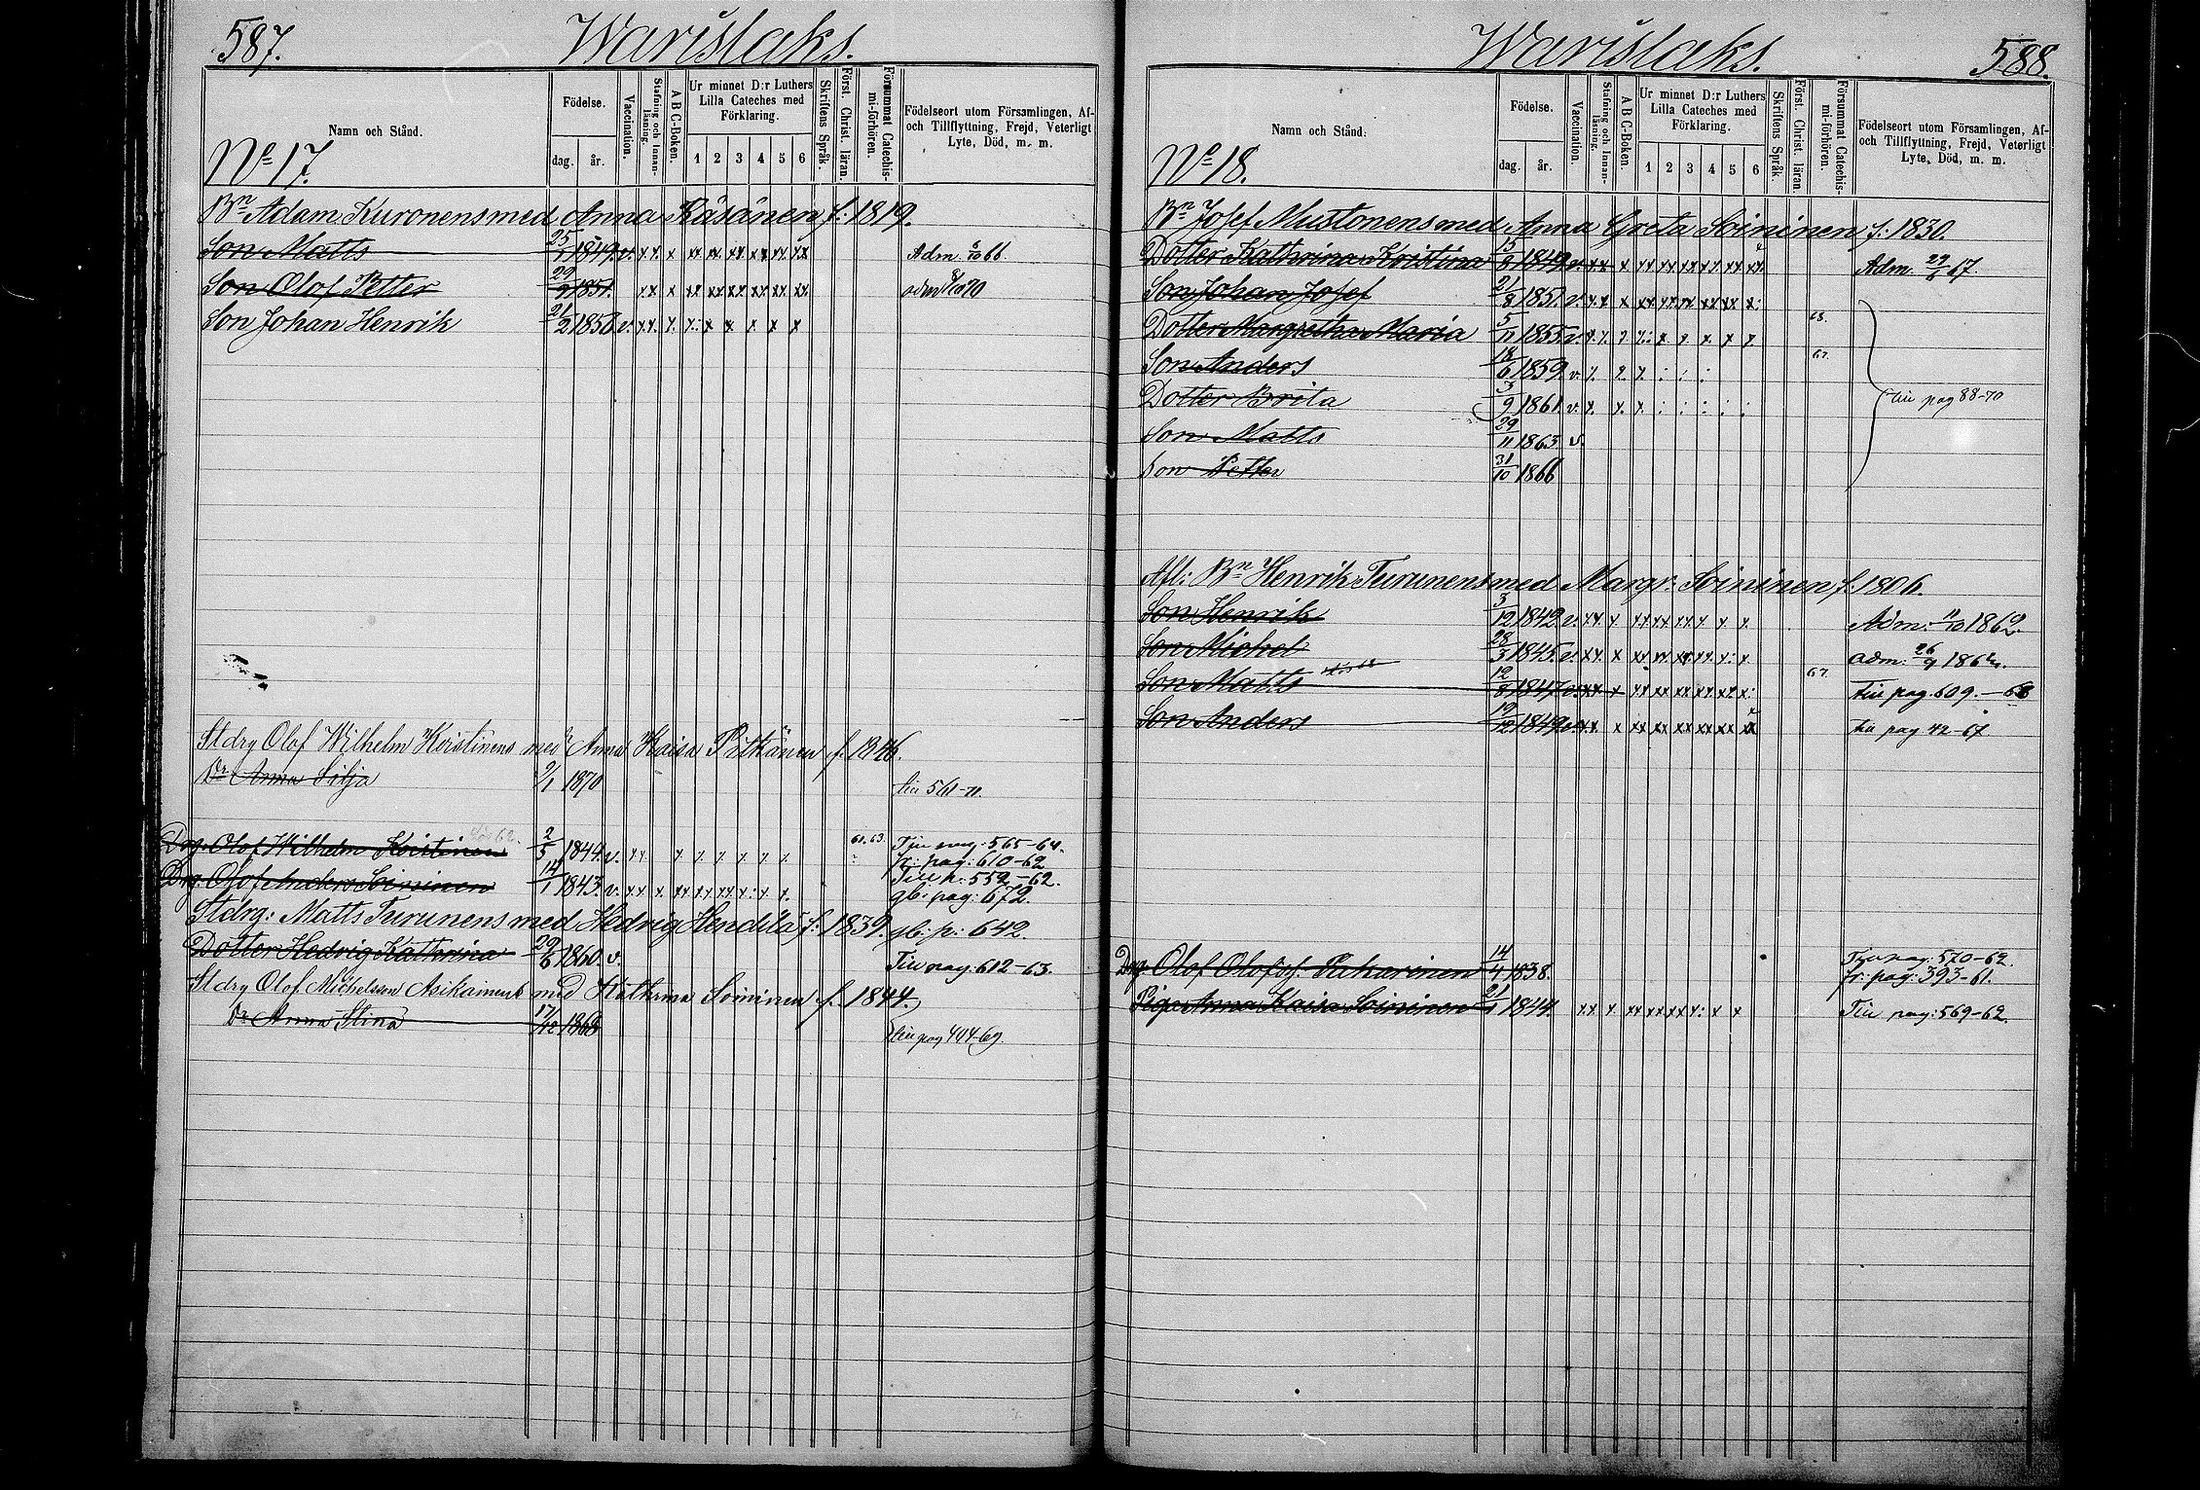 587. Warislaks.
Namn och Stånd.
Födelse.
dag. år.
Vaccination.
Stafning och Innan-läsning.
A B C-Boken.
Ur minnet D:r Luthers
Lilla Cateches med
Förklaring.
1 2 3 4 5 6
Skriftens Språk.
Först. Christ. läran.
Försummat Catechis-mi-förhören.
Födelseort utom Församlingen, Af-
och Tillflyttning, Frejd, Veterligt
Lyte, Död, m. m.
No 17.
Bn Adam Kuronens med Anna Räsänen f: 1819.
Son Matts 1849. v. Adm. 66.
Son Olof Petter 29/9 1851. adm 70
Son Johan Henrik 21/2 1856 v.
Stdrg Olof Wilhelm Koistinens med Anna Kaisa Pitkänen f. 1846.
Dr Anna Silja 2/1 1870 tin 561-71.
Drg: Olof Wilhelm Koistinen 2/5 1844. v. 61.63. Tiu pag: 565-64.
fr: pag: 610-62
Drg: Olof Anders Soininen 14/1 1843. v. Till p: 552-62.
gb: pag: 672.
Stdrg: Matts Turunens med Hedvig Hendilä f: 1839. gb: p: 642.
Dotter Hedvig Kathrina 29/6 1860. v. Tiu pag: 612-63.
Stdrg Olof Michelsson Asikainens med Kathrina Soininen f. 1844.
Dr Anna Stina 17/10 1868 tiu pag 494-69.
Warislaks. 588.
Namn och Stånd.
Födelse.
dag. år.
Vaccination.
Stafning och Innan-läsning.
A B C-Boken.
Ur minnet D:r Luthers
Lilla Cateches med
Förklaring.
1 2 3 4 5 6
Skriftens Språk.
Först. Christ. läran.
Försummat Catechis-mi-förhören.
Födelseort utom Församlingen, Af-
och Tillflyttning, Frejd, Veterligt
Lyte, Död, m. m.
No 18.
Bn Josef Mustonens med Anna Greta Soininen f: 1830.
Dotter Kathrina Kristina 15/8 1849. v. Adm. 29/6 67.
Son Johan Josef 21/8 1851. v.
Dotter Margretha Maria 5/11 1855. v. 68.
Son Anders 18/6 1859. v. 67.
Dotter Brita 3/9 1861. v. tiu pag 88-70
Son Matts 29/11 1863. v.
Son Petter 31/10 1866
Afl: Bn Henrik Turunens med Margr: Soininen f. 1806.
Son Henrik 3/12 1842. v. Adm: 11/10 186
Son Michel 28/3 1845. v. adm: 26/9 186
Son Matts 12/8 1847. v. 67. Tiu pag. 609.-68
Son Anders 19/12 1849. v. tiu pag 42-67
Drg: Olof Olofss. Pakarinen 14/4 1838. Tiu pag: 570-62.
fr: pag: 393-61.
Piga Anna Kaisa Soininen 21/1 1844. Tiu pag: 569-62.